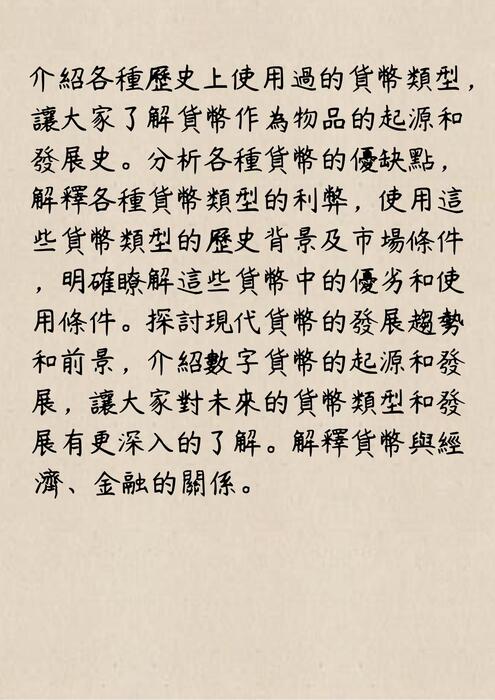 介紹各種歷史上使用過的貨幣類型，
讓大家了解貨幣作為物品的起源和
發展史。分析各種貨幣的優缺點，
解釋各種貨幣類型的利弊，使用這
些貨幣類型的歷史背景及市場條件
，明確瞭解這些貨幣中的優劣和使
用條件。探討現代貨幣的發展趨勢
和前景，介紹數字貨幣的起源和發
展，讓大家對未來的貨幣類型和發
展有更深入的了解。解釋貨幣與經
濟、金融的關係。